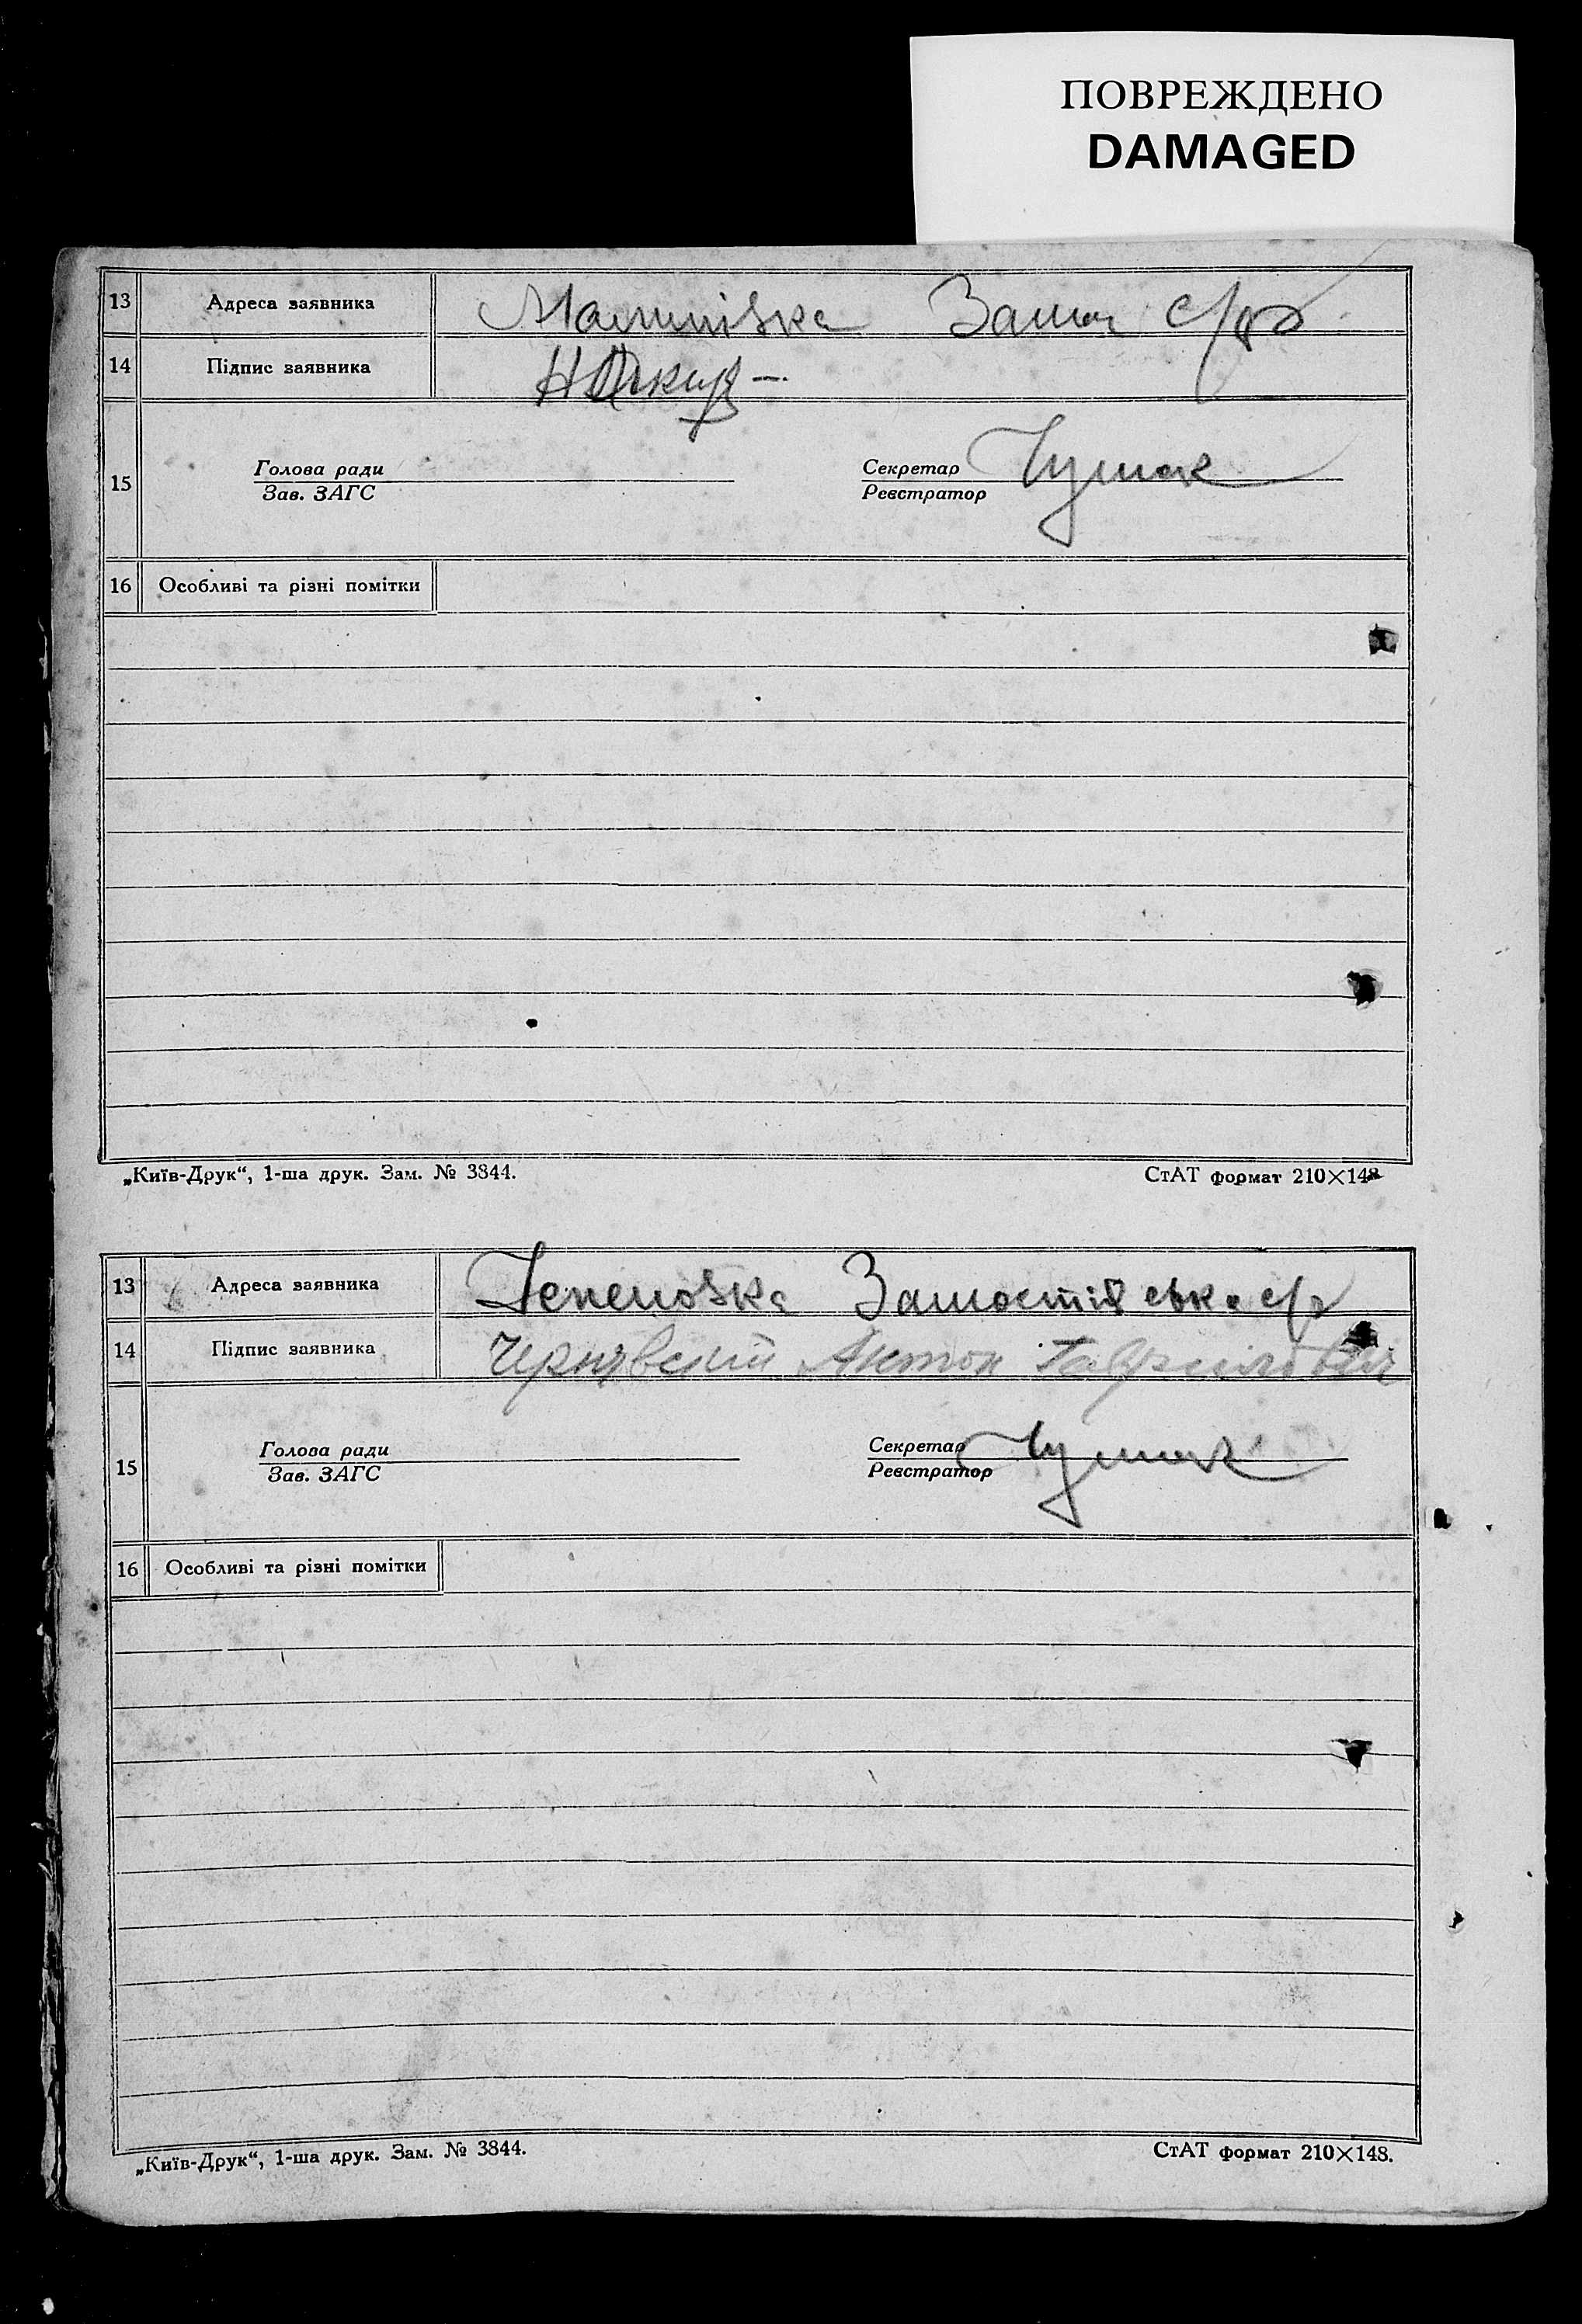 ПОВРЕЖДЕНО
DAMAGED
13 Адреса заявника
14 Підпис заявника
15 Голова ради Секретар Чумак
Зав. ЗАГС Реєстратор
16 Особливі та різні помітки
„Київ-Друк“, 1-ша друк. Зам. № 3844. СтАТ формат 210×148
13 Адреса заявника Лепенівка с/р
14 Підпис заявника Антон Гаврилович
15 Голова ради Секретар Чумак
Зав. ЗАГС Реєстратор
16 Особливі та різні помітки
„Київ-Друк“, 1-ша друк. Зам. № 3844. СтАТ формат 210×148.